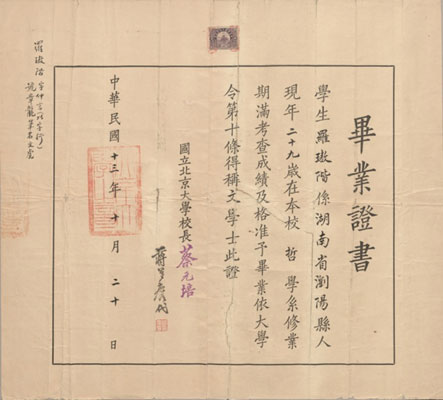 畢業證書
學生羅璈階係湖南省瀏陽縣人
現年二十九歲在本校哲學系修業
期滿考查成績及格准予畢業依大學
令第十條得稱文學士此證
國立北京大學校長蔡元培
蔣夢麐代
中華民國十三年十月二十日
羅璈階字仲言